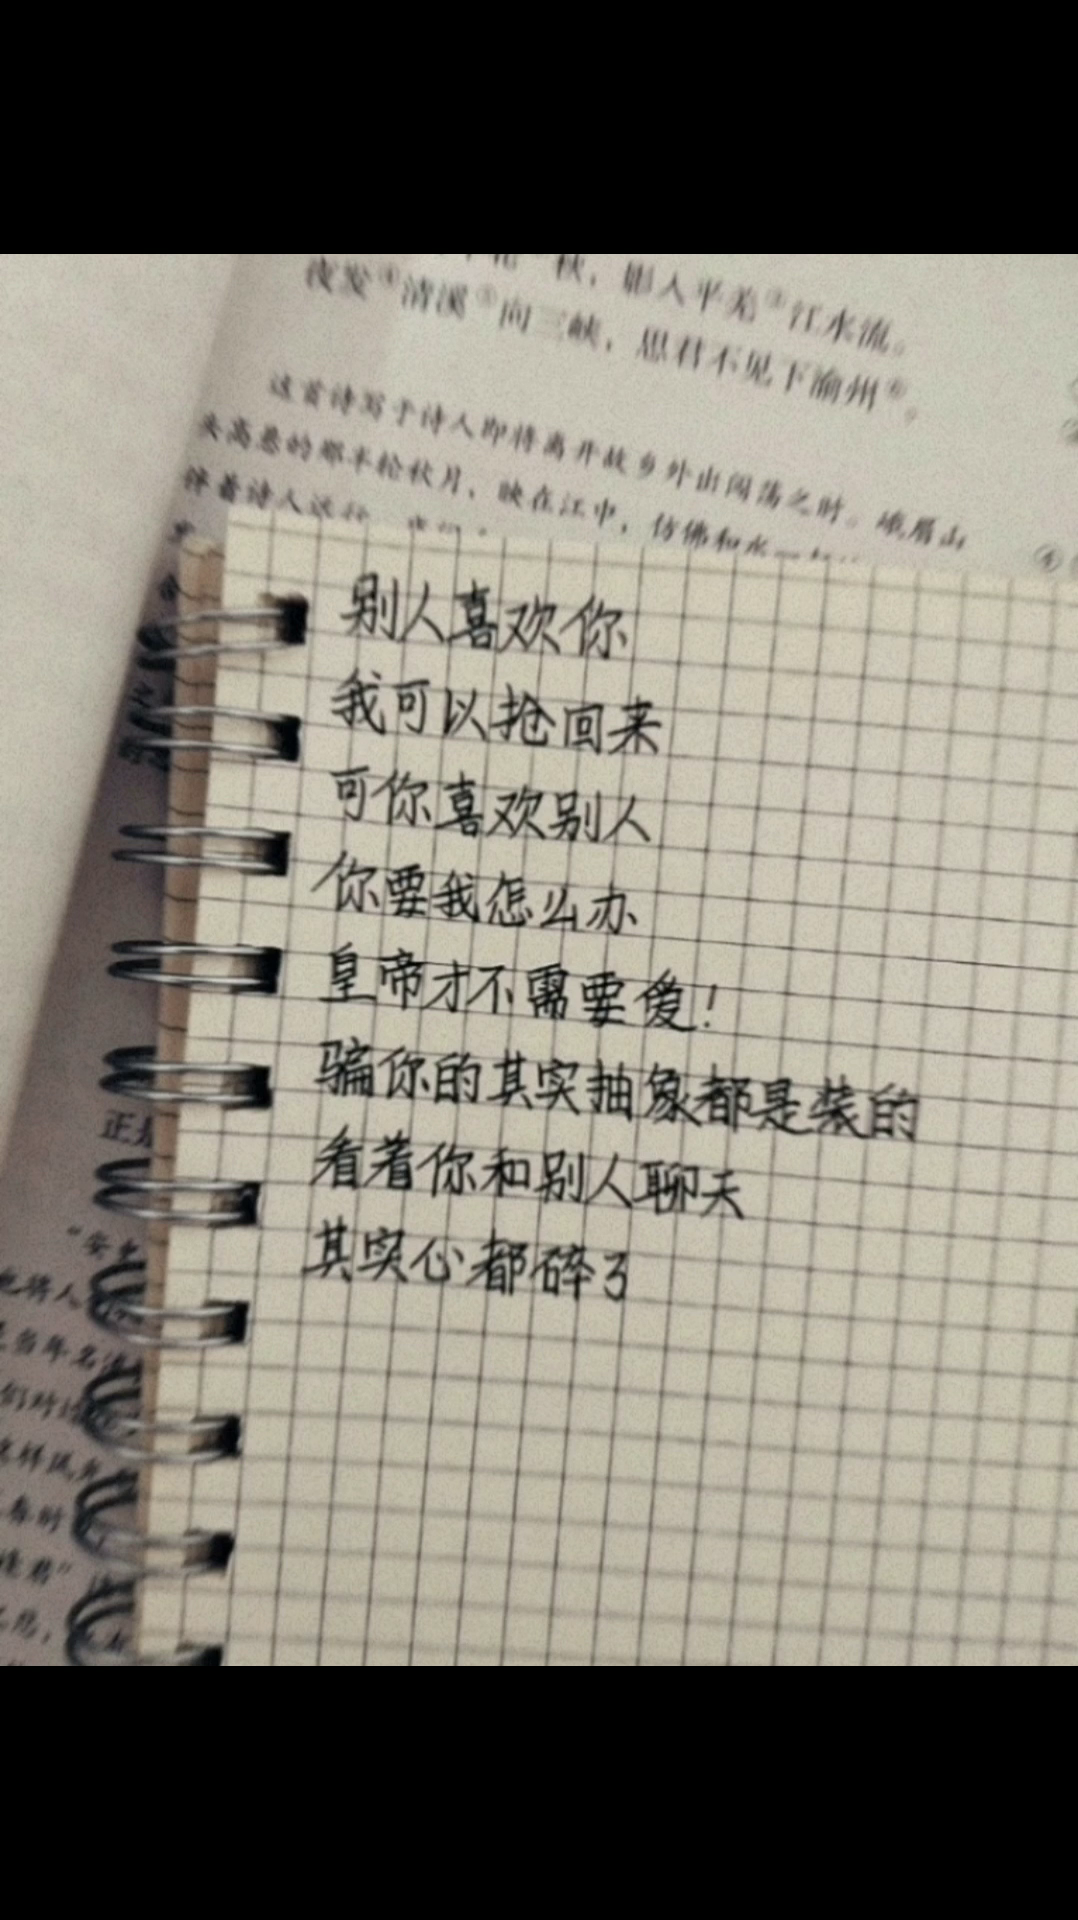 秋，影入平羌③江水流。
夜发④清溪⑤向三峡，思君不见下渝州⑥。
这首诗写于诗人即将离开故乡外出闯荡之时。峨眉山
头高悬的那半轮秋月，映在江中，仿佛和水
伴着诗人远行
别人喜欢你
我可以抢回来
可你喜欢别人
你要我怎么办
皇帝才不需要爱！
骗你的其实抽象都是装的
看着你和别人聊天
其实心都碎了
正是
“安史
也将人
是当年名
们对
这样
春时
逢君”